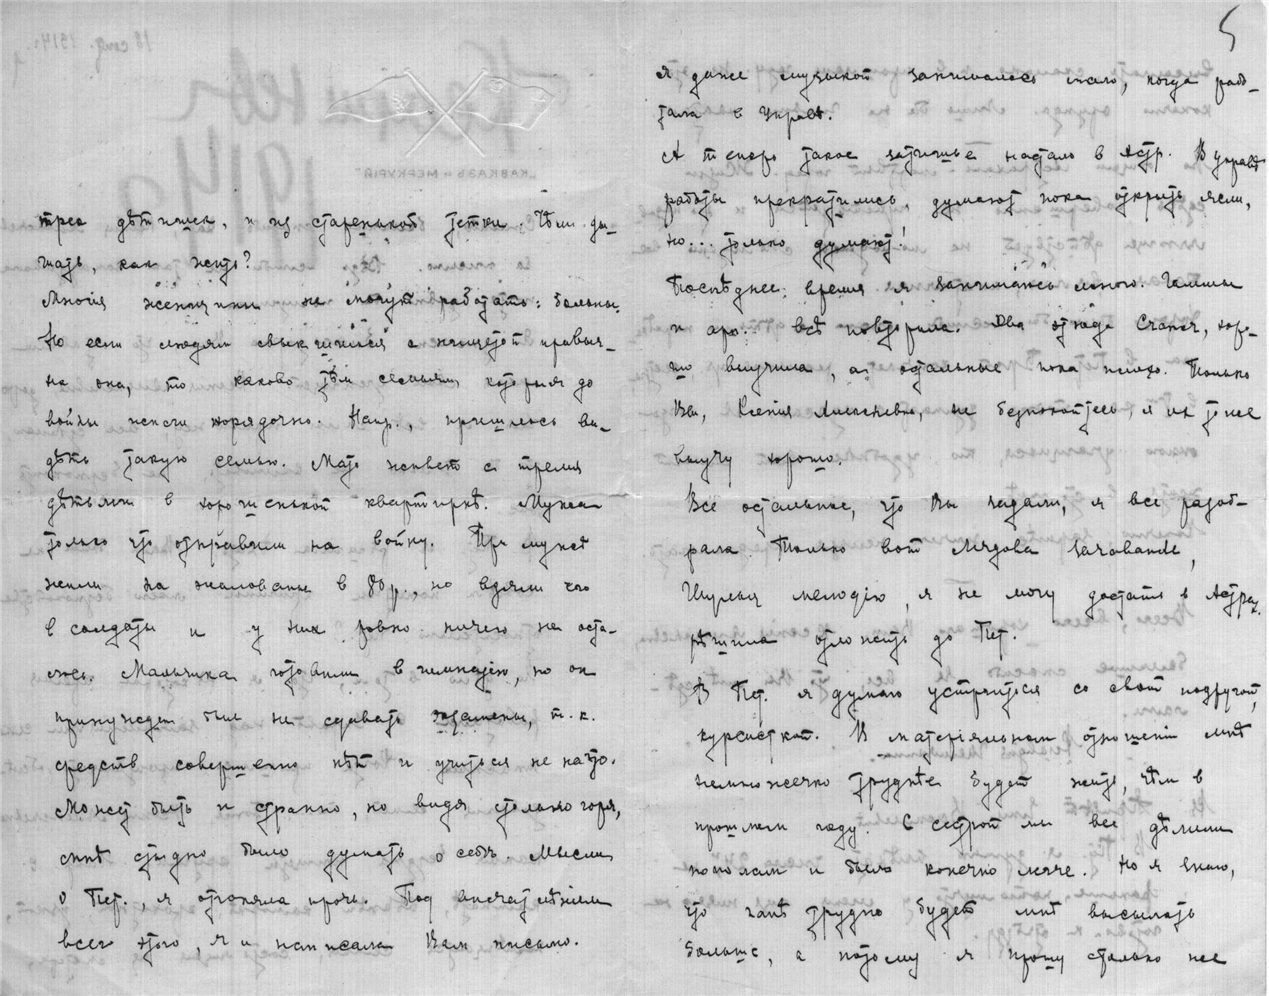 трех дѣтишек, и из старенькой тетки. Чѣм ды-
шать, как жить?
Многія женщины не могут работать: больны.
Но если людям свыкшимся с нищетой привыч-
на она, то каково тѣм семьям, которыя до
войны жили порядочно. Напр., пришлось ви-
дѣть такую семью. Мать живет с тремя
дѣтьми в хорошенькой квартиркѣ. Мужа
только что отправили на войну. При мужѣ
жили на жалованье в 80 р., но взяли его
в солдаты и у них ровно ничего не оста-
лось. Мальчика готовили в гимназію, но он
принужден был не сдавать экзамены, т.к.
средств совершенно нѣт и учиться не на что.
Может быть и странно, но видя столько горя,
мнѣ стыдно было думать о себѣ. Мысли
о Пет., я отгоняла прочь. Под впечатлѣніем
всего этого, я и написала Вам письмо.
5
я даже музыкой занималась мало, когда рабо-
тала в Управѣ.
А теперь такое затишье настало в Астр. В управѣ
работы прекратились, думают пока открыть ясли,
но... только думают!
Послѣднее время я занимаюсь много. Гаммы
и арп. всѣ повторила. Два этюда Cramer, хоро-
шо выучила, а остальные пока плохо. Только
Вы, Ксенія Алексѣевна, не безпокойтесь, я их уже
выучу хорошо.
Все остальное, что Вы задали, я все разоб-
рала. Только вот Лядова Sarabande,
мелодію, я не могу достать в Астрах.
рѣшила отложить до Пет.
В Пет. я думаю устроиться со своей подругой,
курсисткой. В матеріяльном отношеніи мнѣ
немножечко труднѣе будет жить, чѣм в
прошлом году. С сестрой мы все дѣлили
пополам и было конечно легче. Но я знаю,
что папѣ трудно будет мнѣ высылать
больше, а потому я прошу столько же